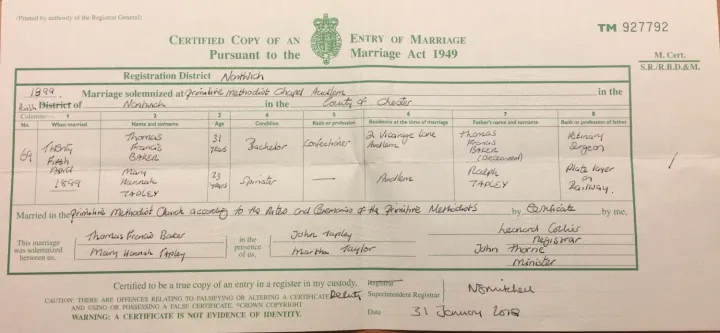 (Printed by authority of the Registrar General)
TM 927792
CERTIFIED COPY OF AN ENTRY OF MARRIAGE
Pursuant to the Marriage Act 1949
M. Cert.
S.R./R.B.D.&M.
Registration District Nantwich
1899. Marriage solemnized at Primitive Methodist Chapel Audlem in the
Parish District of Nantwich in the County of Chester
Columns:— 1 2 3 4 5 6 7 8
No. When married Name and surname Age Condition Rank or profession Residence at the time of marriage Father's name and surname Rank or profession of father
69 Twenty Fifth April 1899
Thomas Francis BAKER 31 years Bachelor Confectioner 2 Vicarage Lane Audlem Thomas Francis BAKER (Deceased)
Mary Hannah TAPLEY 23 years Spinster — Audlem Ralph TAPLEY Plate layer on Railway.
Married in the Primitive Methodist Church according to the Rites and Ceremonies of the Primitive Methodists by Certificate by me,
This marriage was solemnized between us,
Thomas Francis Baker
Mary Hannah Tapley
in the presence of us,
John Tapley
Martha Taylor
Registrar
John Thorne
Minister
Certified to be a true copy of an entry in a register in my custody.
Registrar
Deputy Superintendent Registrar
CAUTION: THERE ARE OFFENCES RELATING TO FALSIFYING OR ALTERING A CERTIFICATE
AND USING OR POSSESSING A FALSE CERTIFICATE. ©CROWN COPYRIGHT
WARNING: A CERTIFICATE IS NOT EVIDENCE OF IDENTITY.
Date 31 January